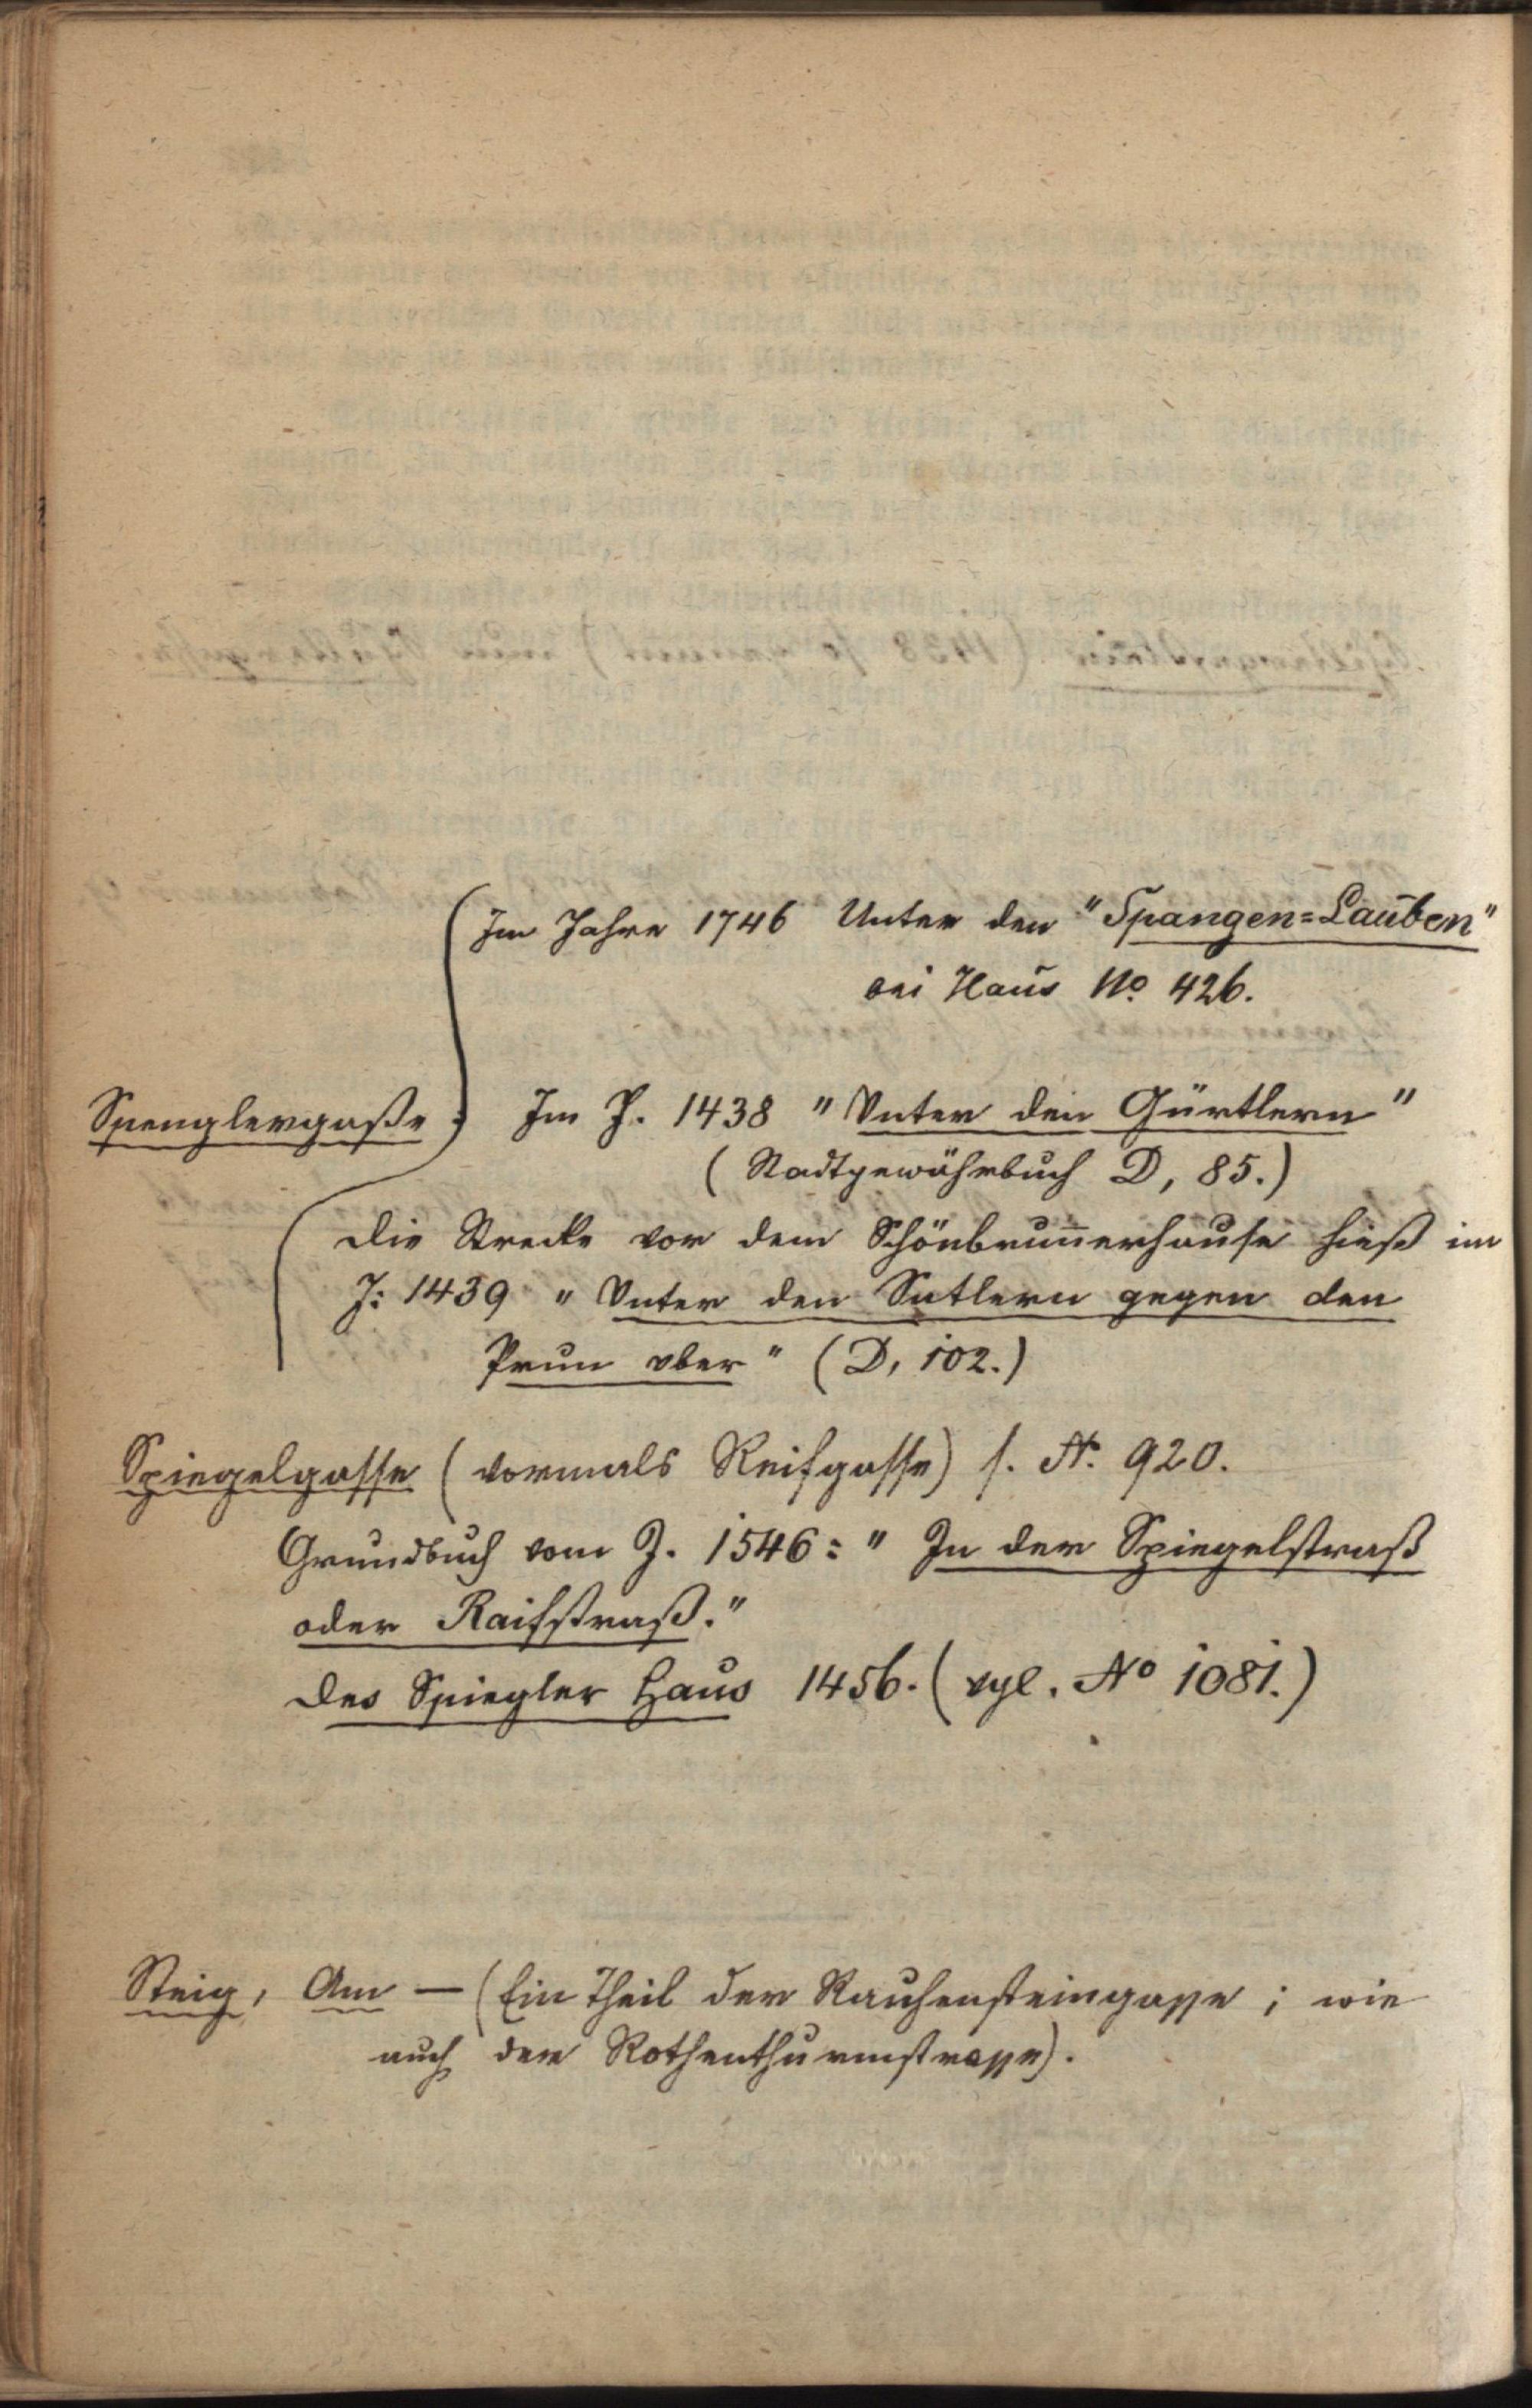 Im Jahre 1746 Unter den "Spangen=Lauben"
bei Haus No. 426.
Spenglergaße: Im J. 1438 "Unter den Gürtlern"
(Stadtgewährbuch D, 85.)
Die Strecke vor dem Schönbrun̄erhause hieß im
J: 1439 "Unter den Satlern gegen den
Prun vber" (D, 102.)
Spiegelgasse (vormals Reifgasse) s. No. 920.
Grundbuch vom J. 1546: "In der Spiegelstraß
oder Raifstraß."
Des Spiegler Haus 1456. (vgl. No 1081.)
Steig, Am — (Ein Theil der Rauhensteingasse; wie
auch der Rothenthurmstrasse).